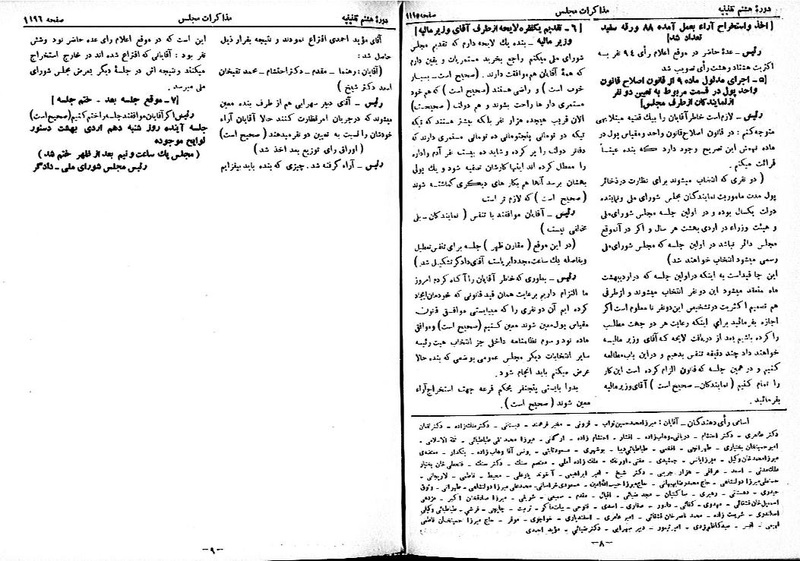 دورهٔ هشتم تقنینیه
مذاکرات مجلس
صفحه ۱۱۹۵
[ اخذ و استخراج آراء بعمل آمده ۸۸ ورقه سفید
تعداد شد ]
رئیس ـ عدهٔ حاضر در موقع اعلام رأی ۹۴ نفر به
اکثریت هشتاد و هشت رأی تصویب شد
[ ۵ ـ اجرای مدلول ماده ۹ از قانون اصلاح قانون
واحد پول در قسمت مربوط به تعیین دو نفر
از نمایندگان از طرف مجلس ]
رئیس ـ لازم است خاطر آقایان را بیک قضیه مبتلابهی
متوجه کنم : در قانون اصلاح قانون واحد و مقیاس پول در
ماده نهمش این تصریح وجود دارد که بنده عیناً
قرائت میکنم .
( دو نفری که انتخاب میشوند برای نظارت در ذخائر
پول مدت ماموریت نمایندگان مجلس شورای ملی و نماینده
دولت یکسال بوده و در اولین جلسه مجلس شورایملی
و هیئت وزراء در اردی بهشت هر سال و اگر در آنموقع
مجلس دائر نباشد در اولین جلسه که مجلس شورایملی
رسمی میشود انتخاب خواهند شد )
این جا قید است به اینکه در اولین جلسه که در اردیبهشت
ماه منعقد میشود این دو نفر انتخاب میشوند و از طرفی
هم تصمیم اکثریت در تشخیص این دو نفر نا معلوم است اگر
اجازه بفرمائید برای اینکه رعایت هر دو جهت مطلب
را کرده باشیم بعد از دریافت لایحه که آقای وزیر مالیه
خواهند داد چند دقیقه تنفس بدهیم و در این باب مطالعه
کنیم و در همین جلسه که قانون الزام کرده است این کار
را تمام کنیم ( نمایندگان ـ صحیح است ) آقای وزیر مالیه
بفرمائید .
[ ۶ ـ تقدیم یکفقره لایحه از طرف آقای وزیر مالیه ]
وزیر مالیه ـ بنده یك لایحه دارم که تقدیم مجلس
شورای ملی میکنم راجع بخرید مستمریات و یقین دارم
که همهٔ آقایان هم موافقت دارند . ( صحیح است ـ بسیار
خوب است ) و راضی هستند ( صحیح است ) که هم
مستمری دار ها راحت بشوند و هم دولت ( صحیح است )
الان قریب هیجده هزار نفر بلکه بیشتر هستند که یکه
تیکه دو تومانی پنجتومانی ده تومانی مستمری دارند که
دفتر دولت را پر کرده و شاید ده بیست نفر آدم و اداره
را معطل کرده اند اینها کارشان تصفیه شود و یك پولی
بهشان برسد آنها هم بکار های دیگری گماشته شوند
( صحیح است ) که لازم تر است
رئیس ـ آقایان موافقند با تنفس ( نمایندگان ـ بلی
مخالفی نیست )
( در این موقع ( مقارن ظهر ) جلسه برای تنفس تعطیل
و بفاصله یك ساعت مجدداً بریاست آقای دادگر تشکیل شد )
رئیس ـ بطوری که خاطر آقایان را آگاه کردم امروز
ما التزام داریم برعایت همان قید قانونی که خودمان ایجاد
کرده ایم آن دو نفری را که میبایستی موافق قانون
مقیاس پول معین شوند معین کنیم ( صحیح است ) و موافق
ماده نود و سوم نظامنامه داخلی جز انتخاب هیئت رئیسه
سایر انتخابات دیگر مجلس عمومی بوضعی که بنده حالا
عرض میکنم باید انجام شود .
بدواً بایستی پنجنفر بحکم قرعه جهت استخراج آراء
معین شوند ( صحیح است ) .
اسامی رأی دهندگان ـ آقایان : میرزا محمد حسین نواب ـ قزوینی ـ مخبر فرهمند ـ دبستانی ـ دکتر ملکزاده ـ دکتر لقمان
دکتر طاهری ـ دکتر احتشام ـ دیبا ـ وهابزاده ـ افشار ـ احتشام زاده ـ ارگانی ـ میرزا محمد تقی طباطبائی ـ ثقة الاسلامی ـ
ـ ۸ ـ
دورهٔ هشتم تقنینیه
مذاکرات مجلس
صفحه ۱۱۹۶
آقای مؤید احمدی اقتراع نمودند و نتیجه بقرار ذیل
حاصل شد :
( آقایان : رهنما ـ مقدم ـ دکتر احتشام ـ محمد تقیخان
اسد دکتر شیخ )
رئیس ـ آقای دبیر سهرابی هم از طرف بنده معین
میشوند که در جریان امر نظارت کنند حالا آقایان آراء
خودشان را نسبت به تعیین دو نفر میدهند ( صحیح است )
( اوراق رأی توزیع بعد اخذ شد )
رئیس ـ آراء گرفته شد . چیزی که بنده باید بیفزایم
این است که در موقع اعلام رأی عده حاضر نود وشش
نفر بود : آقایانی که اقتراع شده اند در خارج استخراج
میکنند و نتیجه اش در جلسهٔ دیگر بعرض مجلس شورای
ملی میرسد .
[ ۷ ـ موقع جلسه بعد ـ ختم جلسه ]
رئیس ـ اگر آقایان موافقند جلسه را ختم کنیم ( صحیح است )
جلسه آینده روز شنبه دهم اردی بهشت دستور
لوایح موجوده
( مجلس یک ساعت و نیم بعد از ظهر ختم شد )
رئیس مجلس شورای ملی ـ دادگر
ـ ۹ ـ